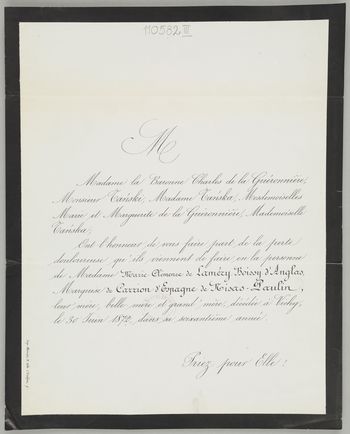 110582 III
M
Madame la Baronne Charles de la Guéronnière,
Monsieur Tański, Madame Tańska, Mesdemoiselles
Marie et Marguerite de la Guéronnière, Mademoiselle
Tańska,
Ont l'honneur de vous faire part de la perte
douloureuse qu'ils viennent de faire en la personne
de Madame Marie Clémence de Laméry Boissy d'Anglas,
Marquise de Carrion d'Espagne de Nisas-Paulin,
leur mère, belle mère et grand mère, décédée à Vichy,
le 30 Juin 1872, dans sa soixantième année.
Priez pour Elle!